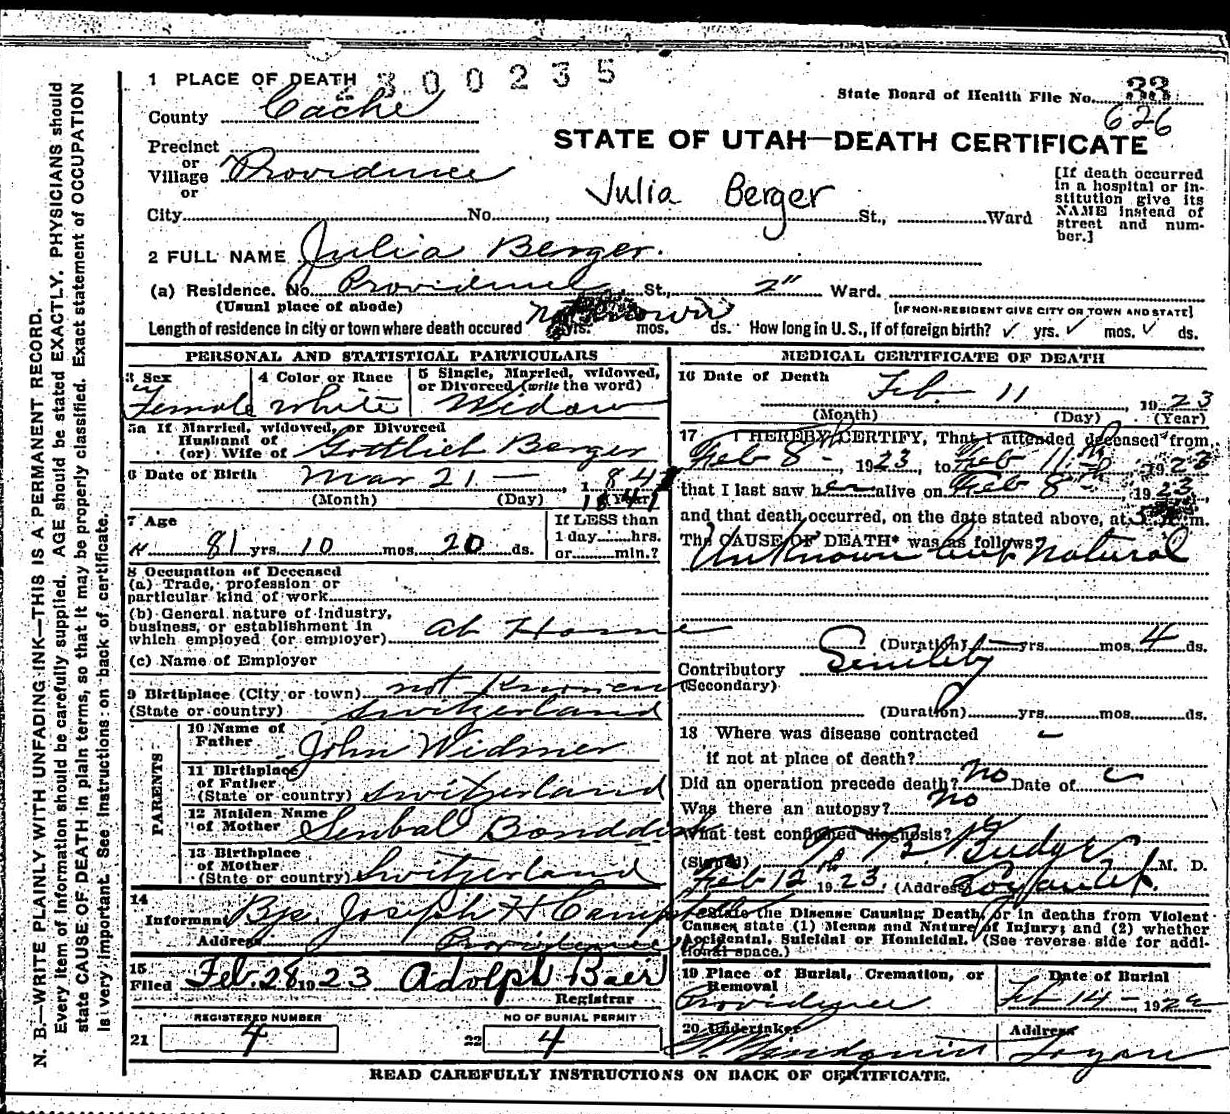 N. B.—WRITE PLAINLY WITH UNFADING INK—THIS IS A PERMANENT RECORD.
Every item of information should be carefully supplied. AGE should be stated EXACTLY. PHYSICIANS should
state CAUSE OF DEATH in plain terms, so that it may be properly classified. Exact statement of OCCUPATION
is very important. See instructions on back of certificate.
1 PLACE OF DEATH 2300235
State Board of Health File No. 33
County Cache
626
STATE OF UTAH—DEATH CERTIFICATE
Precinct
or
Village Providence
or
[If death occurred
in a hospital or in-
stitution give its
NAME instead of
street and num-
ber.]
Julia Berger
City No. St., Ward
2 FULL NAME Julia Berger.
(a) Residence. No. Providence St., 2" Ward.
(Usual place of abode)
[IF NON-RESIDENT GIVE CITY OR TOWN AND STATE]
Length of residence in city or town where death occured not known yrs. mos. ds. How long in U. S., if of foreign birth? ✓ yrs. ✓ mos. ✓ ds.
PERSONAL AND STATISTICAL PARTICULARS
3 Sex
Female
4 Color or Race
White
5 Single, Married, widowed,
or Divorced (write the word)
Widow
5a If Married, widowed, or Divorced
Husband of
(or) Wife of Gottlich Berger
6 Date of Birth Mar 21 — 1 84
(Month) (Day) 1841 (Year)
7 Age
81 yrs. 10 mos. 20 ds.
If LESS than
1 day hrs.
or min.?
8 Occupation of Deceased
(a) Trade, profession or
particular kind of work
(b) General nature of industry,
business, or establishment in
which employed (or employer) at Home
(c) Name of Employer
9 Birthplace (City or town) not Known
(State or country) Switzerland
PARENTS
10 Name of
Father John Widmer
11 Birthplace
of Father
(State or country) Switzerland
12 Maiden Name
of Mother
13 Birthplace
of Mother
(State or country) Switzerland
14
Informant Bp. Joseph H Campbell
Address Providence
15
Filed Feb. 28 1923 Adolph Baer
Registrar
REGISTERED NUMBER
21 4
NO OF BURIAL PERMIT
22 4
MEDICAL CERTIFICATE OF DEATH
16 Date of Death Feb. 11 1923
(Month) (Day) (Year)
17 I HEREBY CERTIFY, That I attended deceased from
Feb 8th, 1923 to Feb 11th, 1923
that I last saw her alive on Feb 8th, 1923,
and that death occurred, on the date stated above, at m.
The CAUSE OF DEATH* was as follows:
Unknown but natural
(Duration) — yrs. mos. 4 ds.
Contributory Senility
(Secondary)
(Duration) yrs. mos. ds.
18 Where was disease contracted
if not at place of death?
Did an operation precede death? no Date of
Was there an autopsy? no
What test confirmed diagnosis?
(Signed) Budge M. D.
Feb 12th 1923, (Address) Logan Ut.
*State the Disease Causing Death, or in deaths from Violent
Causes, state (1) Means and Nature of Injury; and (2) whether
Accidental, Suicidal or Homicidal. (See reverse side for addi-
tional space.)
19 Place of Burial, Cremation, or
Removal
Providence
Date of Burial
Feb 14 — 192
20 Undertaker
Lindquist
Address
Logan
READ CAREFULLY INSTRUCTIONS ON BACK OF CERTIFICATE.